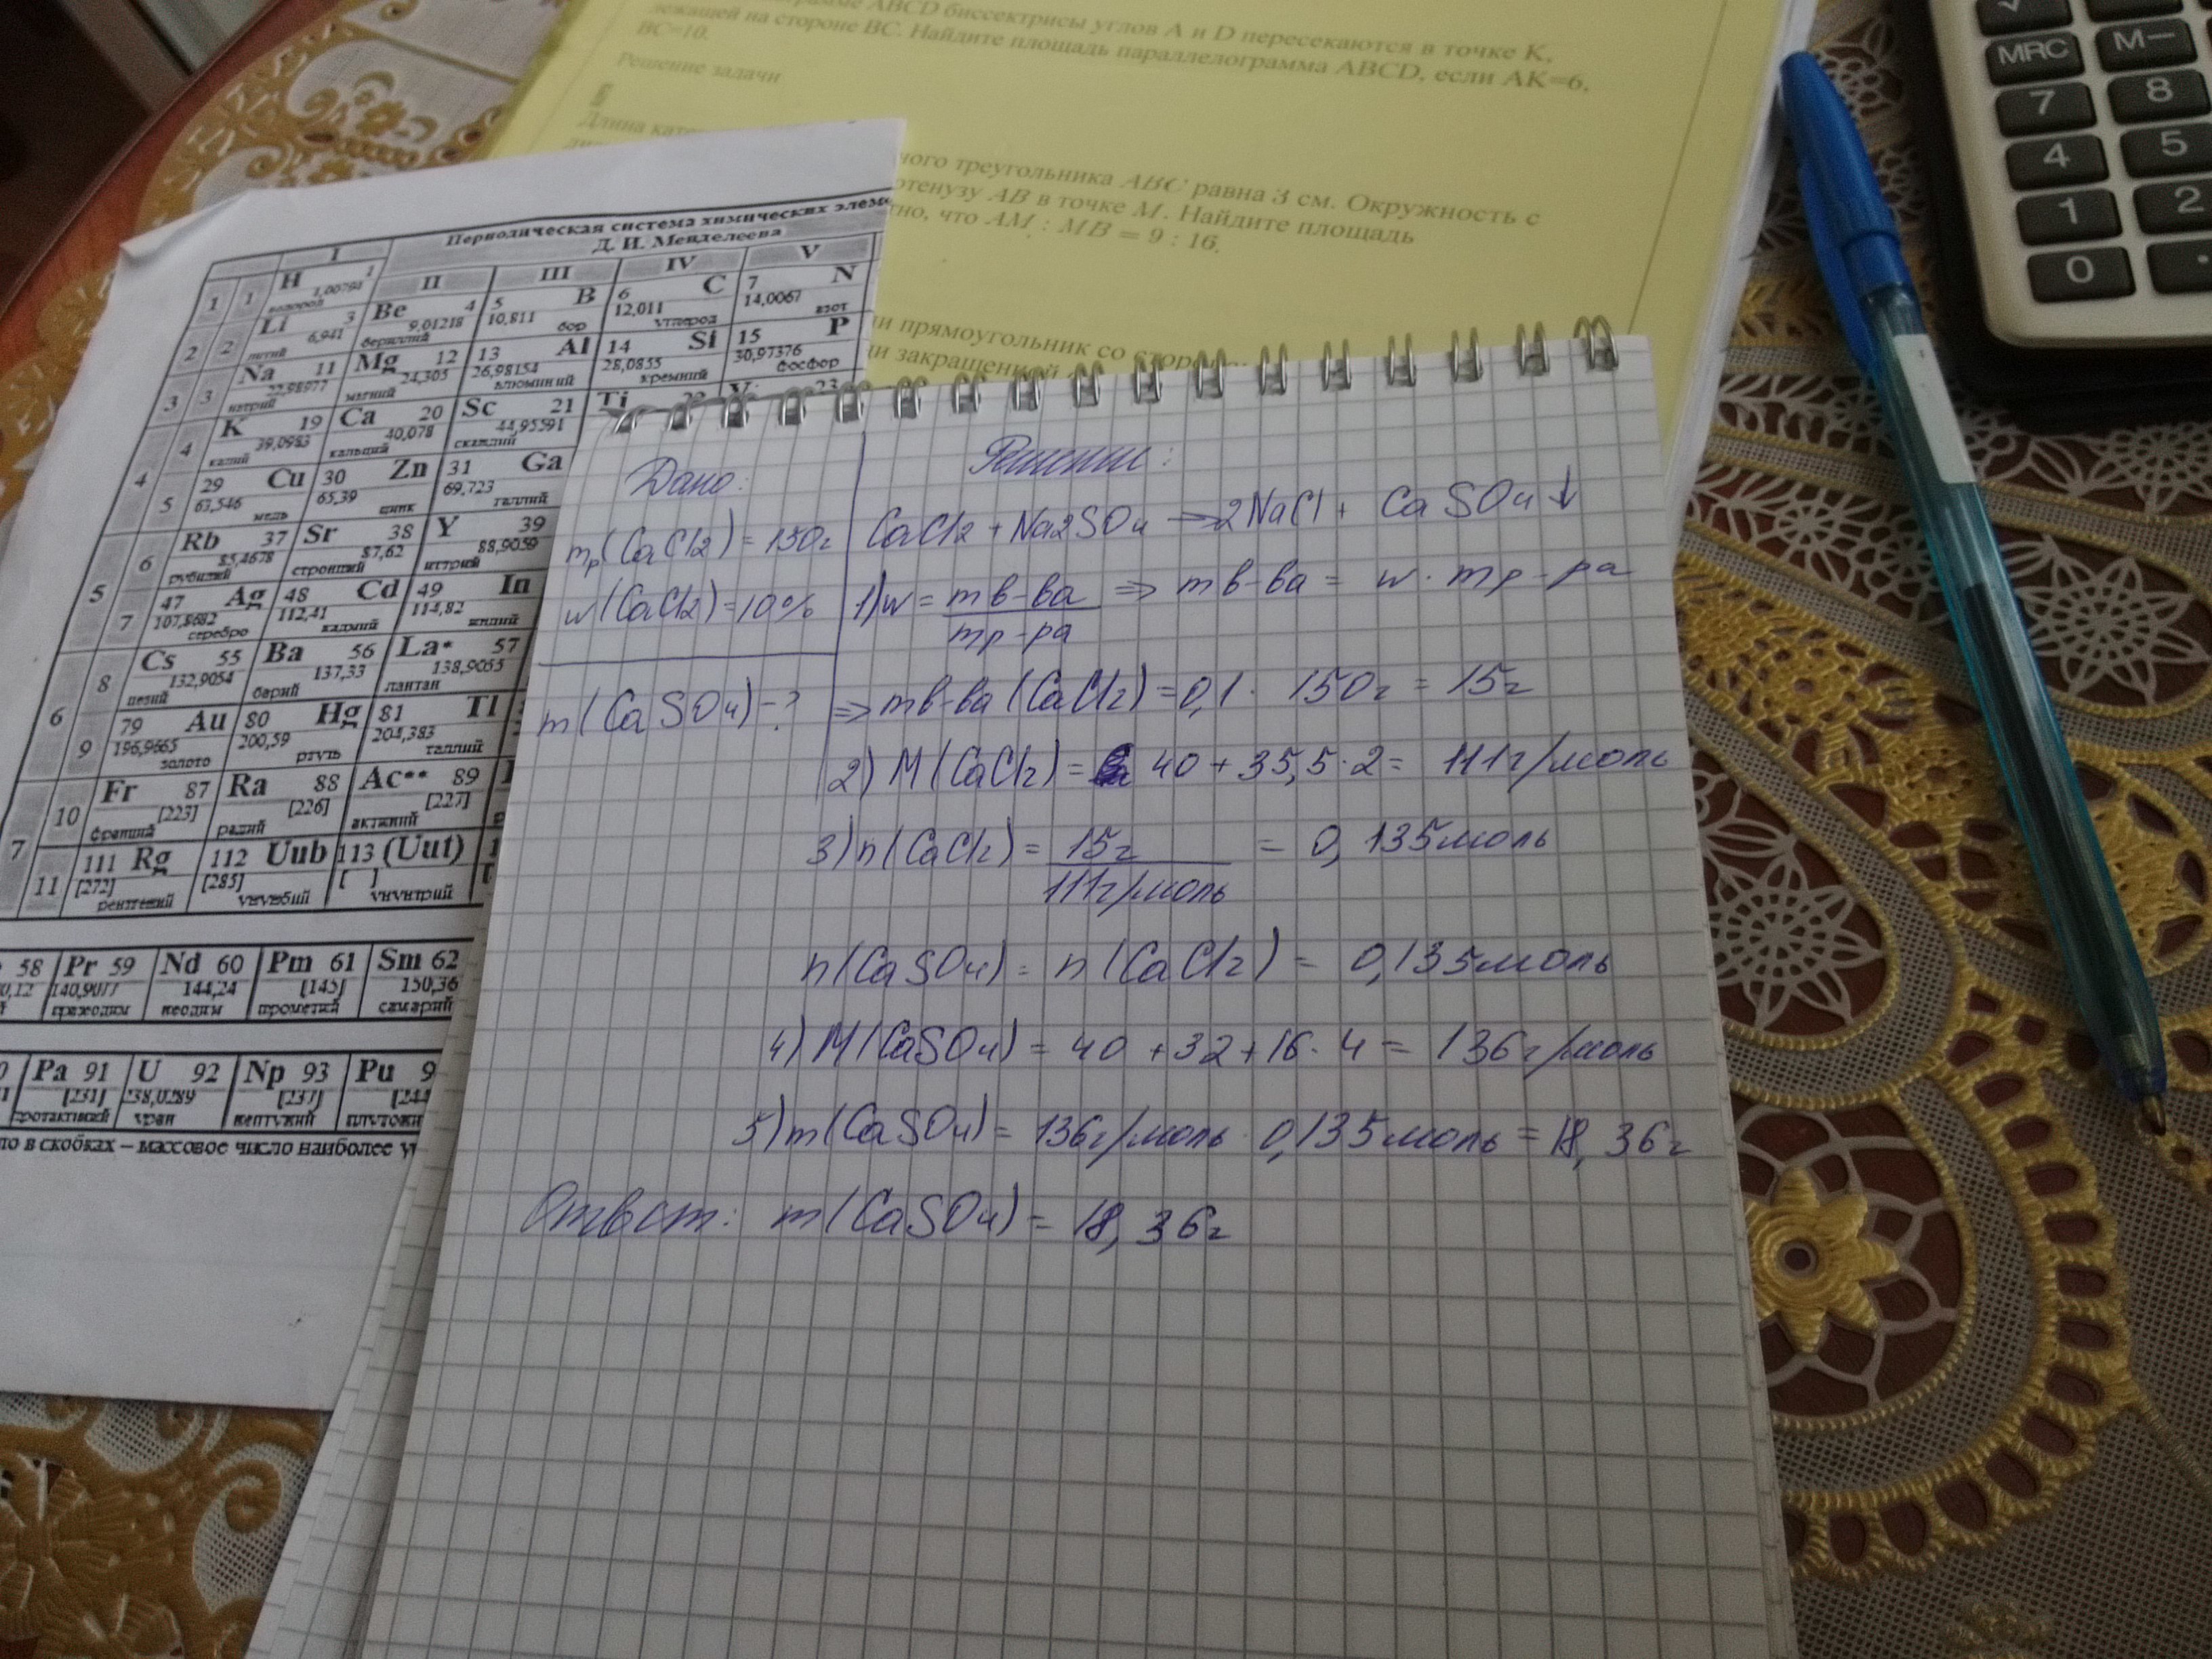 грамме ABCD биссектрисы углов A и D пересекаются в точке K,
лежащей на стороне BC. Найдите площадь параллелограмма ABCD, если AK=6,
BC=10.
Решение задачи
6
Длина кат
ного треугольника ABC равна 3 см. Окружность с
отенузу AB в точке M. Найдите площадь
тно, что AM : MB = 9 : 16.
ли прямоугольник со сторо
закрашенной
√
MRC M−
7 8
4 5
1 2
0 .
Периодическая система химических элеме
Д. И. Менделеева
I II III IV V
1 1 H 1
1,00794
водород
2 2 Li 3 Be 4 5 B 6 C 7 N
6,941 9,01218 10,811 12,011 14,0067
литий бериллий бор углерод азот
3 3 Na 11 Mg 12 13 Al 14 Si 15 P
22,98977 24,305 26,98154 28,0855 30,97376
натрий магний алюминий кремний фосфор
4 4 K 19 Ca 20 Sc 21 Ti 22 V 23
39,0983 40,078 44,95591
калий кальций скандий
5 29 Cu 30 Zn 31 Ga
63,546 65,39 69,723
медь цинк галлий
5 6 Rb 37 Sr 38 Y 39
85,4678 87,62 88,9059
рубидий стронций иттрий
7 47 Ag 48 Cd 49 In
107,8682 112,41 114,82
серебро кадмий индий
6 8 Cs 55 Ba 56 La* 57
132,9054 137,33 138,9055
цезий барий лантан
9 79 Au 80 Hg 81 Tl
196,9665 200,59 204,383
золото ртуть таллий
7 10 Fr 87 Ra 88 Ac** 89
[223] [226] [227]
франций радий актиний
11 111 Rg 112 Uub 113 (Uut)
[272] [285] [ ]
рентгений унунбий унунтрий
58 Pr 59 Nd 60 Pm 61 Sm 62
0,12 140,9077 144,24 [145] 150,36
празеодим неодим прометий самарий
Pa 91 U 92 Np 93 Pu 9
[231] 238,0289 [237] [244
протактиний уран нептуний плутони
ло в скобках – массовое число наиболее у
Дано:
mр(CaCl2) = 150г
w(CaCl2) = 10%
m(CaSO4) - ?
Решение:
CaCl2 + Na2SO4 → 2NaCl + CaSO4↓
1) w = mв-ва / mр-ра ⇒ mв-ва = w · mр-ра
⇒ mв-ва (CaCl2) = 0,1 · 150г = 15г
2) M(CaCl2) = 40 + 35,5·2 = 111г/моль
3) n(CaCl2) = 15г / 111г/моль = 0,135моль
n(CaSO4) = n(CaCl2) = 0,135моль
4) M(CaSO4) = 40 + 32 + 16·4 = 136г/моль
5) m(CaSO4) = 136г/моль · 0,135моль = 18,36г
Ответ: m(CaSO4) = 18,36г